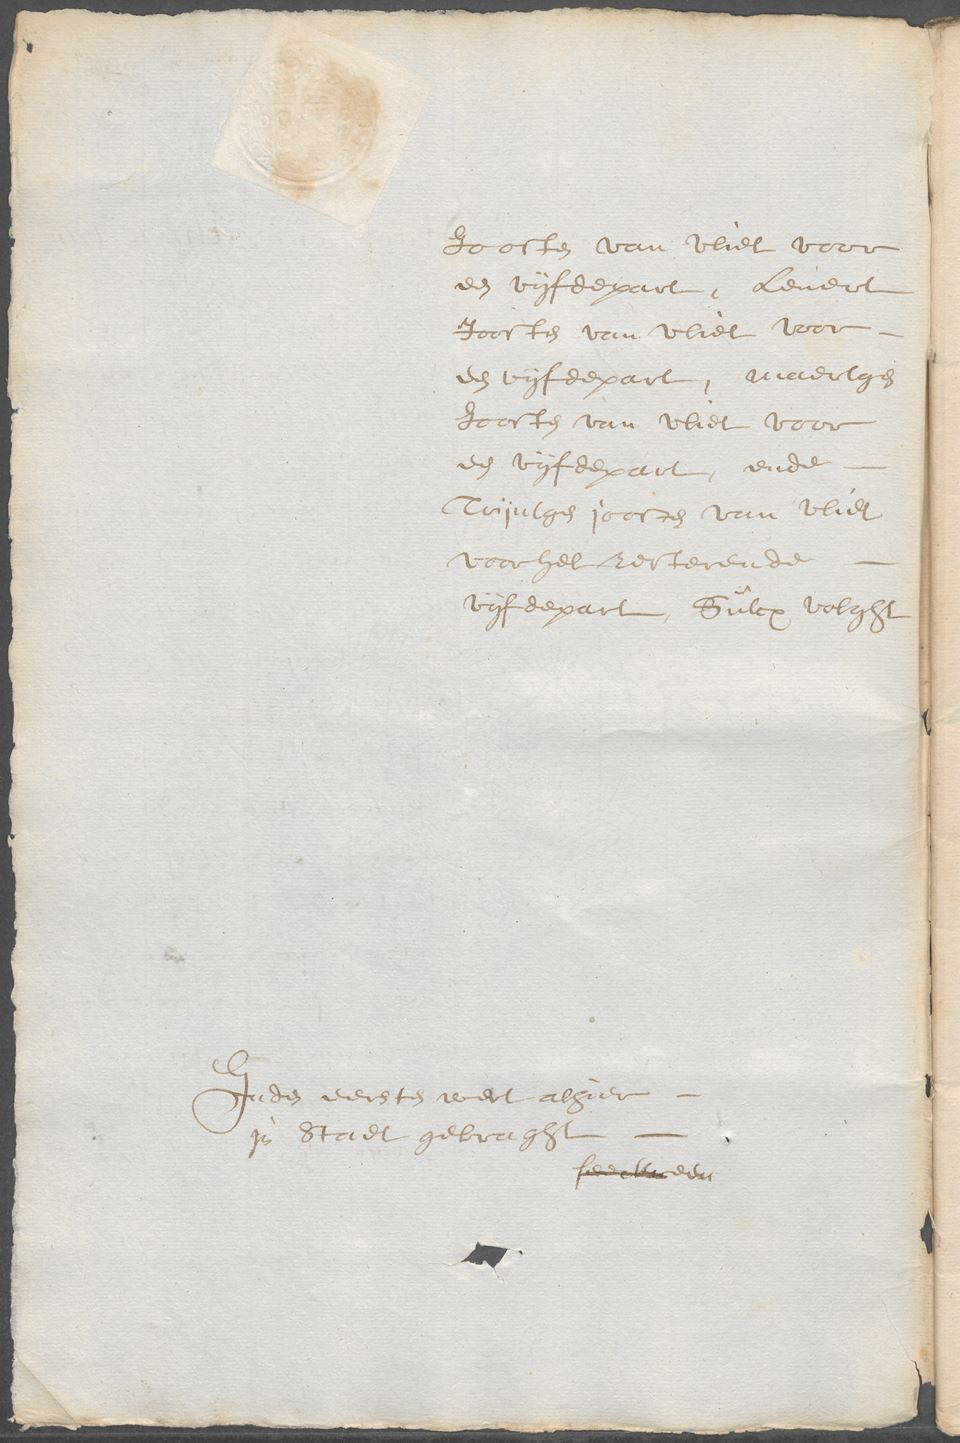 Joosten van vliet voor
een vijfdepart, Leuert
Joosten van vliet voor –
een vijfdepart, maertgen
Joosten van vliet voor
een vijfdepart, ende –
Trijntgen joosten van vliet
voor het resterende –
vijfdepart, Sulcx volght
Inden eersten wert alhier –
in Stadt gebraght –